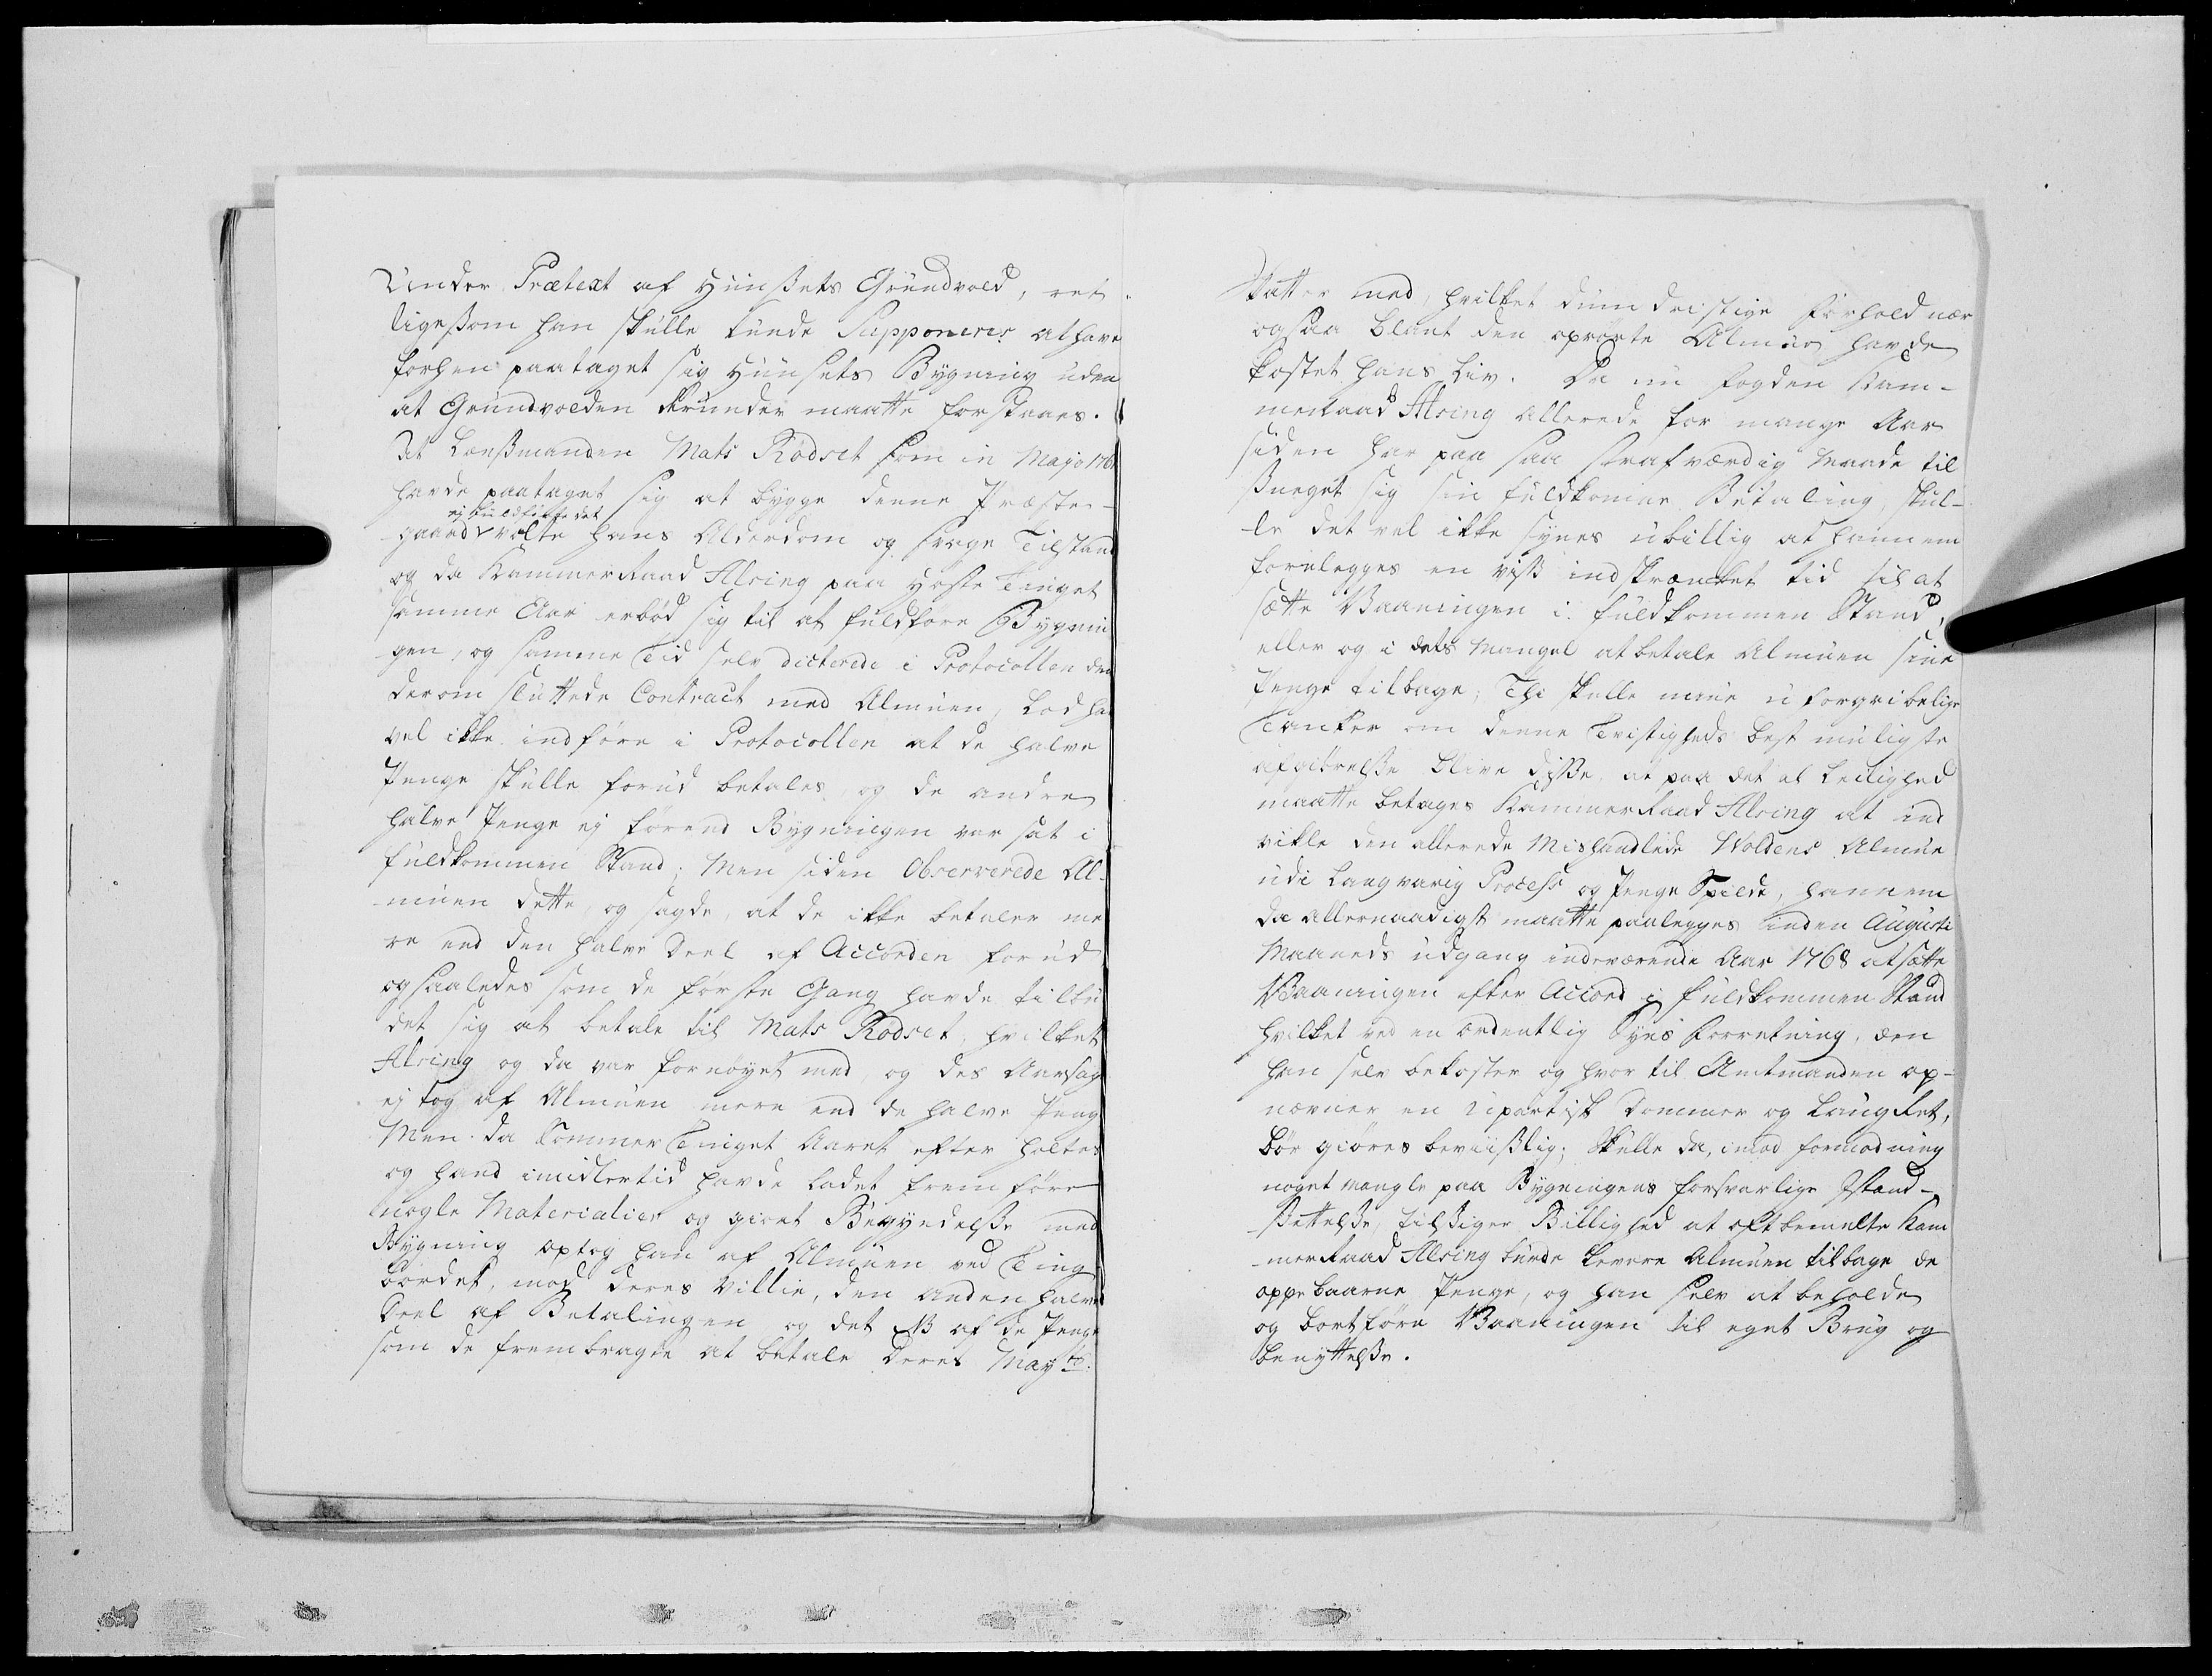 Under Prætext af Huusets Grundvold, ret
ligesom han skulle kunde Supponeres at have
forhen paataget sig Huusets Bygning uden
at Grundvolden herunder maatte forstaaes.
At Lensmanden Mats Rødset som in Majo 1761
havde paataget sig at bygge denne Præste-
ej fuldførte det
gaard volte hans Alderdom og svage Tilstand
og da KammerRaad Alsing paa Høste Tinget
samme Aar erbød sig til at fuldføre Bygnin
gen, og samme Tid selv dicterede i Protocollen den
derom sluttede Contract med Almuen, Lod han
vel ikke indføre i Protocollen at de halve
Penge skulle forud betales, og de andre
halve Penge ej førend Bygningen var sat i
fuldkommen Stand; Men siden Observerede Al-
muen dette, og sagde, at de ikke betaler me
re end den halve Deel af Accorden forud
og saaledes som de første Gang havde tilbu
det sig at betale til Mats Rødset, hvilket
Alsing og da var fornøyet med, og des Aarsag
ej tog af Almuen mere end de halve Penge
Men da Sommer Tinget Aaret efter holtes
og hand imidlertid havde ladet fremføre
nogle Materialier og giort Begyndelse med
Bygning optog han af Almuen ved Ting
bordet, mod deres Villie, den anden halve
Deel af Betalingen og det af de Penge
som de frembragte at betale Deres Mayts.
Skatter med, hvilket dumdristige Forhold nær
ogsaa blant den oprørte Almue havde
kostet hans Liv. Da nu Fogden Kam-
merRaad Alsing allerede for mange Aar
siden har paa saa strafværdig Maade til
sneget sig sin fuldkomne Betaling, skul-
le det vel ikke synes ubillig at hannem
forelegges en viss indskrænket tid til at
sætte Vaaningen i fuldkommen Stand,
eller og i dets Mangel at betale Almuen sine
Penge tilbage; Thi skulle mine uforgribelige
Tanker om denne Tvistigheds best muligste
afgiørelse blive disse, at paa det al Leilighed
maatte betages KammerRaad Alsing at ind
vikle den allerede Mishandlede Woldens Almue
udi Langvarig Process og Penge Spilde, hannem
da allernaadigst maatte paalegges inden Augusti
Maaneds udgang indeværende Aar 1768 at sætte
Vaaningen efter Accord i fuldkommen Stand
hvilket ved en ordentlig Syns Forretning, den
han selv bekoster og hvor til Amtmanden op-
nævner en Upartisk Dommer og Laug Ret,
bør giøres beviislig; Skulle da, imod formodning
noget mangle paa Bygningens forsvarlige Istand-
settelse, tilsiger Billighed at oftbemelte Kam
merRaad Alsing burde levere Almuen tilbage de
oppebaarne Penge, og han selv at beholde
og bortføre Vaaningen til eget Brug og
benyttelse.